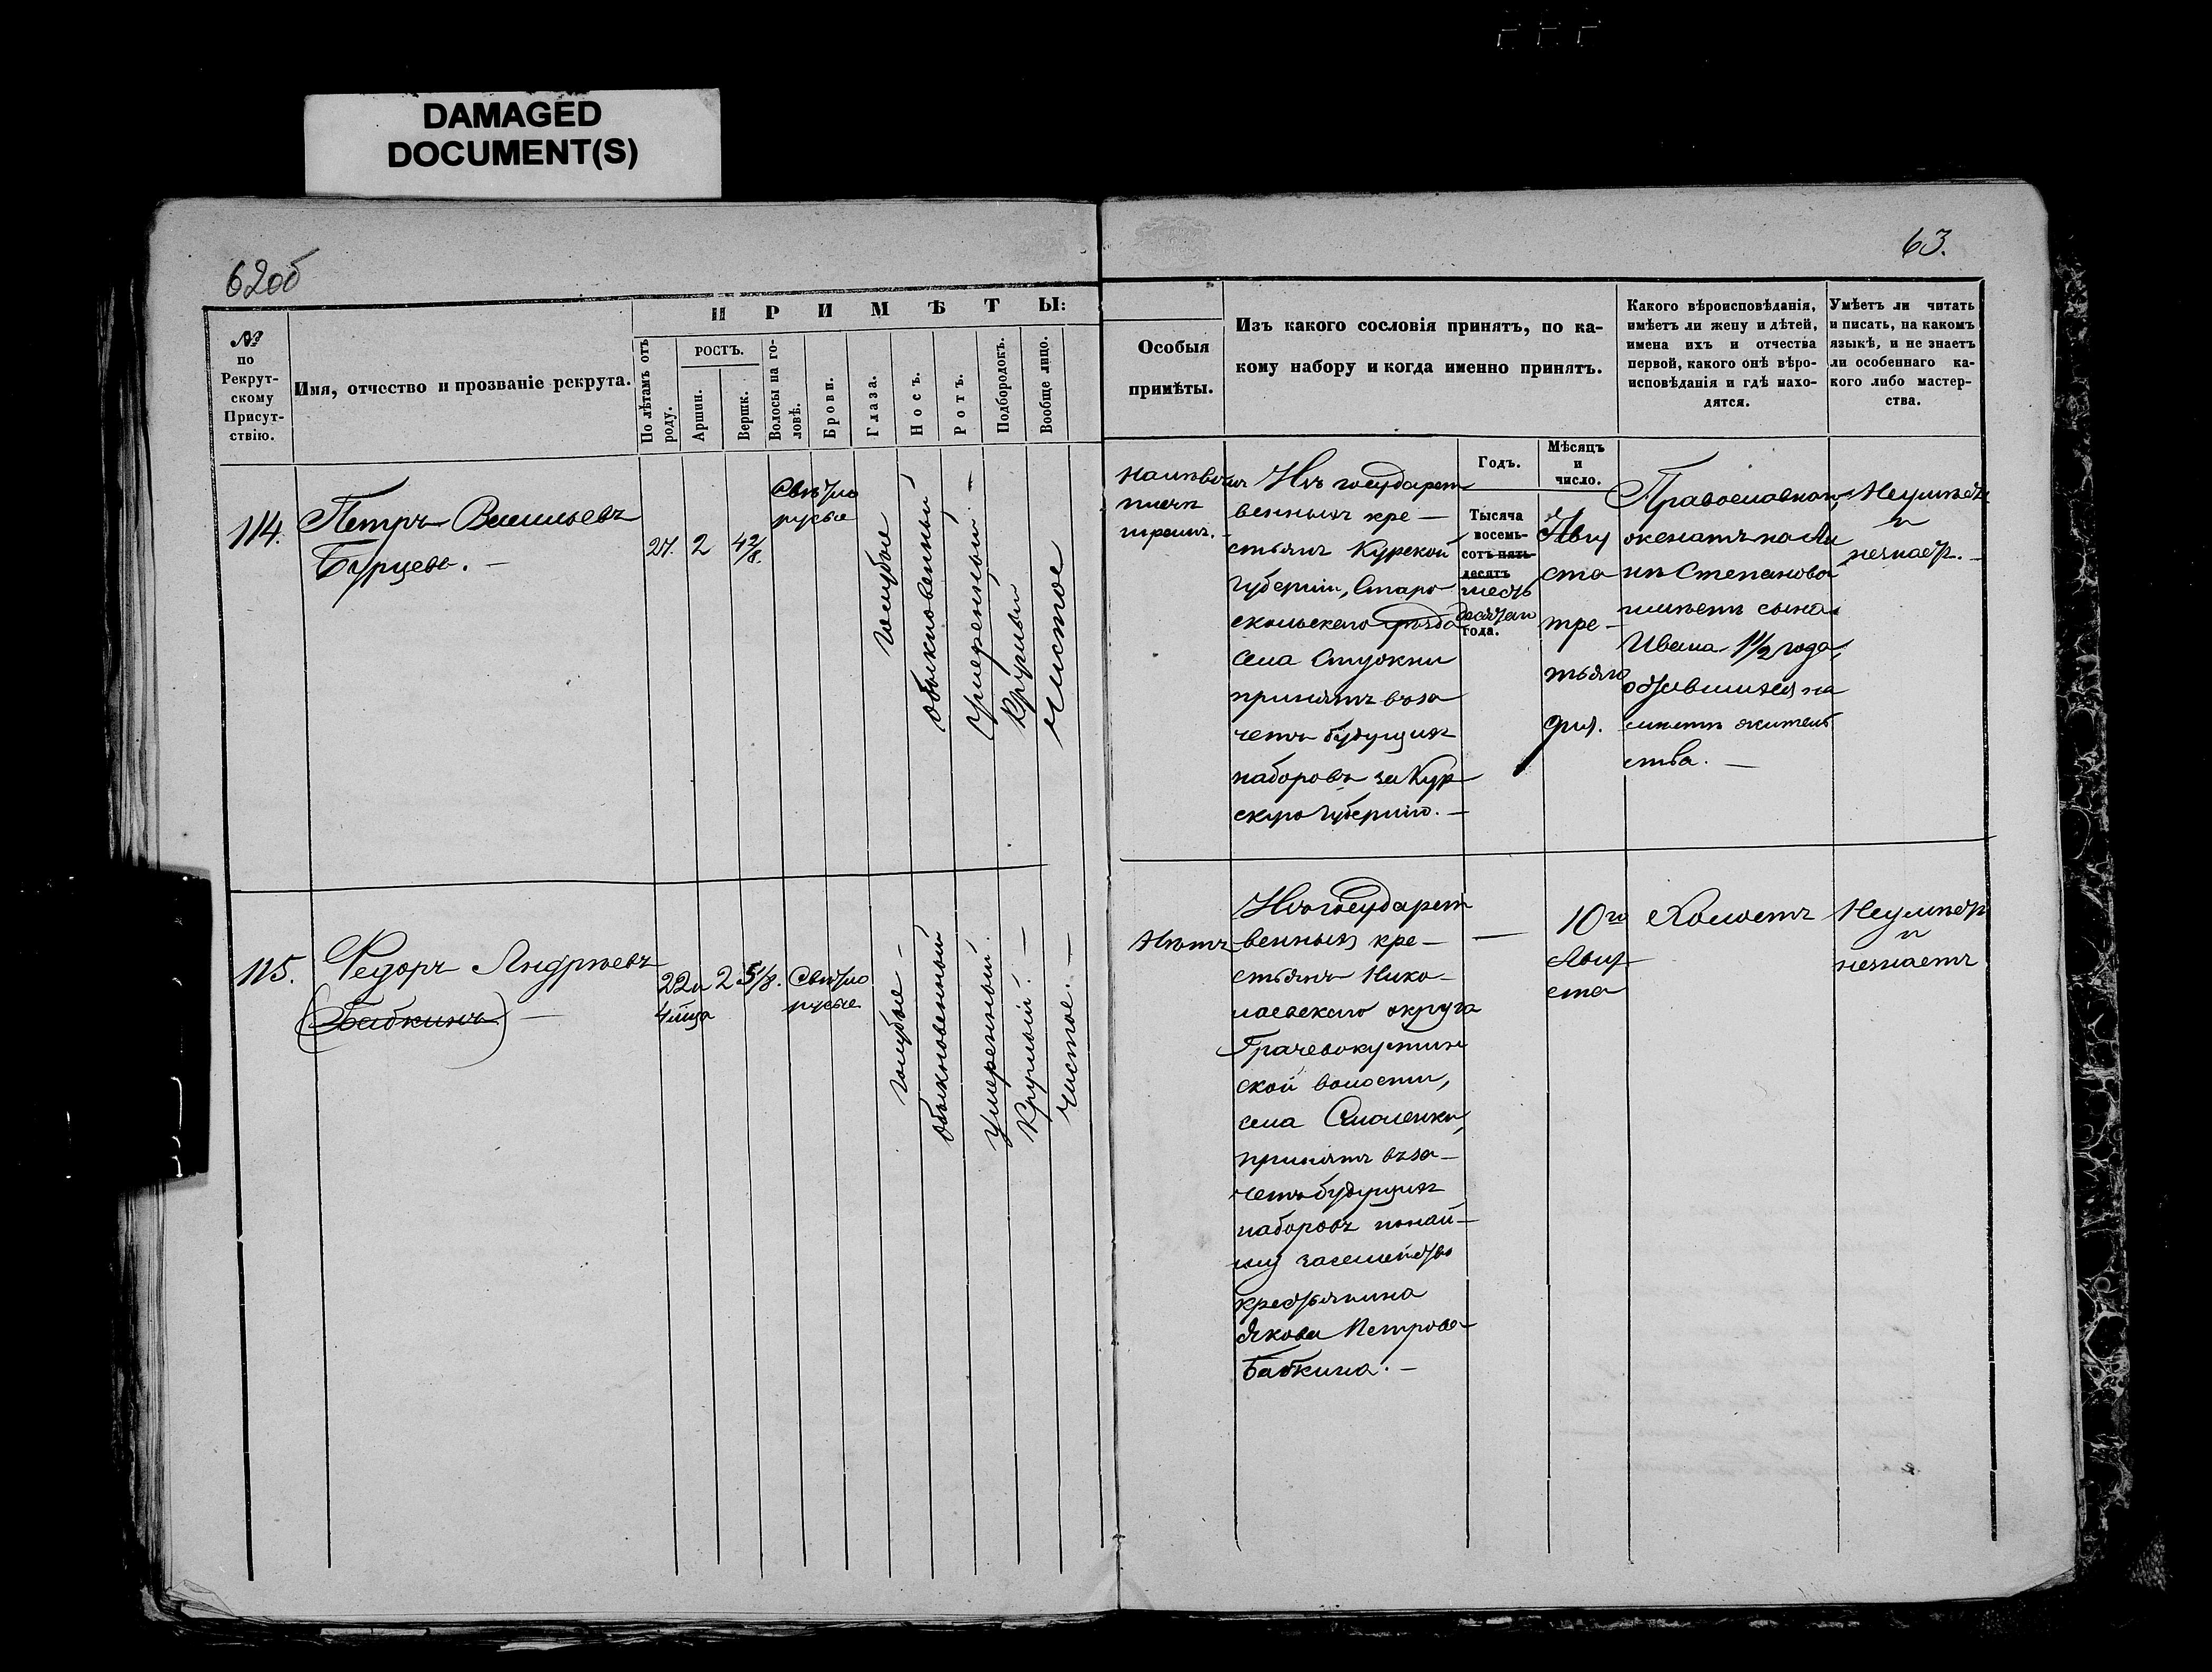 DAMAGED
DOCUMENT(S)
62об
63.
ПРИМѢТЫ:
№
по
Рекрут-
скому
Присут-
ствію.
Имя, отчество и прозваніе рекрута.
По лѣтамъ отъ
роду.
РОСТЪ.
Аршин.
Вершк.
Волосы на го-
ловѣ.
Брови.
Глаза.
Носъ.
Ротъ.
Подбородокъ.
Вообще лицо.
Особыя
примѣты.
Изъ какого сословія принятъ, по ка-
кому набору и когда именно принятъ.
Годъ.
Мѣсяцъ
и
число.
Какого вѣроисповѣданія,
имѣетъ ли жену и дѣтей,
имена ихъ и отчества
первой, какого онѣ вѣро-
исповѣданія и гдѣ нахо-
дятся.
Умѣетъ ли читать
и писать, на какомъ
языкѣ, и не знаетъ
ли особеннаго ка-
кого либо мастер-
ства.
114.
Петръ Васильевъ
Бурцевъ. —
27.
2
4 2/8.
Свѣтло
русые
голубые
обыкновенный
умеренный. —
круглый
чистое
на лѣвом
плечѣ
шрамъ.
Изъ государст
венныхъ кре —
стьянъ Курской
губерніи, Старо
скольскаго уѣзда
села
принятъ въ за
четъ будущих
наборовъ за Кур
скую губернію. —
Тысяча
восемь-
сотъ пять-
десятъ
шесть
десятаго
года.
Авгу
ста
тре —
тьяго
дня.
Православнаго,
женатъ на Ан
нѣ Степановой
имѣетъ сына
Ивана 1 1/2 года,
оставшихся на
мѣстѣ житель
ства. —
Неумѣетъ
и
незнает. —
115.
Федоръ Андреевъ
(Бабкинъ) —
22 л
4 м̃ца
2
5 1/8.
Свѣтло
русые
голубые —
обыкновенный
умеренный.
круглый. —
чистое. —
Нѣтъ
Изъ государст
венныхъ кре —
стьянъ Нико —
лаевскаго округа
Грачевокустин
ской волости,
села Смоленки,
принятъ въ за —
четъ будущих
наборовъ по най —
му за семейство
крестьянина
Якова Петрова
Бабкина. —
—
10го
Авгу
ста
Холостъ
Неумѣет
и
незнаетъ